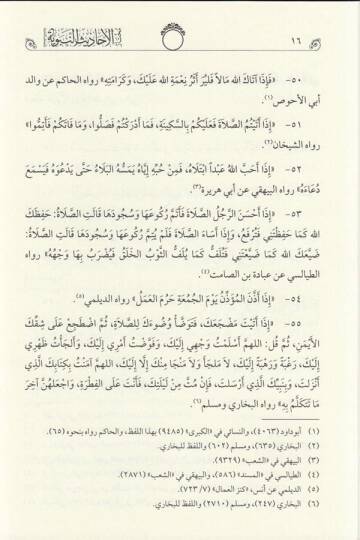 ١٦ الأحاديث النبوية
٥٠- «فَإِذَا آتَاكَ الله مَالاً فَليُرَ أَثَرُ نِعْمَةِ الله عَلَيْكَ، وَكَرَامَتِهِ» رواه الحاكم عن والد
أبي الأحوص(١).
٥١- «إِذَا أَتَيْتُمُ الصَّلَاةَ فَعَلَيْكُم بِالسَّكِينَةِ، فَمَا أَدْرَكْتُمْ فَصَلُّوا، وَمَا فَاتَكُمْ فَأَتِمُّوا»
رواه الشيخان(٢).
٥٢- «إِذَا أَحَبَّ اللهُ عَبْداً ابْتَلَاهُ، فَمِنْ حُبِّهِ إِيَّاهُ يَمَسُّهُ البَلَاءُ حَتَّى يَدْعُوَهُ فَيَسْمَعَ
دُعَاءَهُ» رواه البيهقي عن أبي هريرة(٣).
٥٣- «إِذَا أَحْسَنَ الرَّجُلُ الصَّلَاةَ فَأَتَمَّ رُكُوعَهَا وَسُجُودَهَا قَالَتِ الصَّلَاةُ: حَفِظَكَ
الله كَمَا حَفِظْتَنِي فَتُرْفَعُ، وَإِذَا أَسَاءَ الصَّلَاةَ فَلَمْ يُتِمَّ رُكُوعَهَا وَسُجُودَهَا قَالَتِ الصَّلَاةُ:
ضَيَّعَكَ الله كَمَا ضَيَّعْتَنِي فَتُلَفُّ كَمَا يُلَفُّ الثَّوْبُ الخَلَقُ فَيُضْرَبُ بِهَا وَجْهُهُ» رواه
الطيالسي عن عبادة بن الصامت(٤).
٥٤- «إِذَا أَذَّنَ المُؤَذِّنُ يَوْمَ الجُمُعَةِ حَرُمَ العَمَلُ» رواه الديلمي(٥).
٥٥- «إِذَا أَتَيْتَ مَضْجَعَكَ، فَتَوَضَّأْ وُضُوءَكَ لِلصَّلَاةِ، ثُمَّ اضْطَجِعْ عَلَى شِقِّكَ
الأَيْمَنِ، ثُمَّ قُل: اللهم أَسْلَمْتُ وَجْهِي إِلَيْكَ، وَفَوَّضْتُ أَمْرِي إِلَيْكَ، وَأَلْجَأْتُ ظَهْرِي
إِلَيْكَ، رَغْبَةً وَرَهْبَةً إِلَيْكَ، لَا مَلجَأَ وَلَا مَنْجَا مِنْكَ إِلَّا إِلَيْكَ، اللهم آمَنْتُ بِكِتَابِكَ الَّذِي
أَنْزَلتَ، وَبِنَبِيِّكَ الَّذِي أَرْسَلتَ، فَإِنْ مُتَّ مِنْ لَيْلَتِكَ، فَأَنْتَ عَلَى الفِطْرَةِ، وَاجْعَلهُنَّ آخِرَ
مَا تَتَكَلَّمُ بِهِ» رواه البخاري ومسلم(٦).
(١) أبو داود (٤٠٦٣)، والنسائي في «الكبرى» (٩٤٨٥) بهذا اللفظ، والحاكم رواه بنحوه (٦٥).
(٢) البخاري (٦٣٥)، ومسلم (٦٠٢) واللفظ للبخاري.
(٣) البيهقي في «الشعب» (٩٣٢٩).
(٤) الطيالسي في «المسند» (٥٨٦)، والبيهقي في «الشعب» (٢٨٧١).
(٥) الديلمي عن أنس، «كنز العمال» (٧٢٣/٧).
(٦) البخاري (٢٤٧)، ومسلم (٢٧١٠) واللفظ للبخاري.